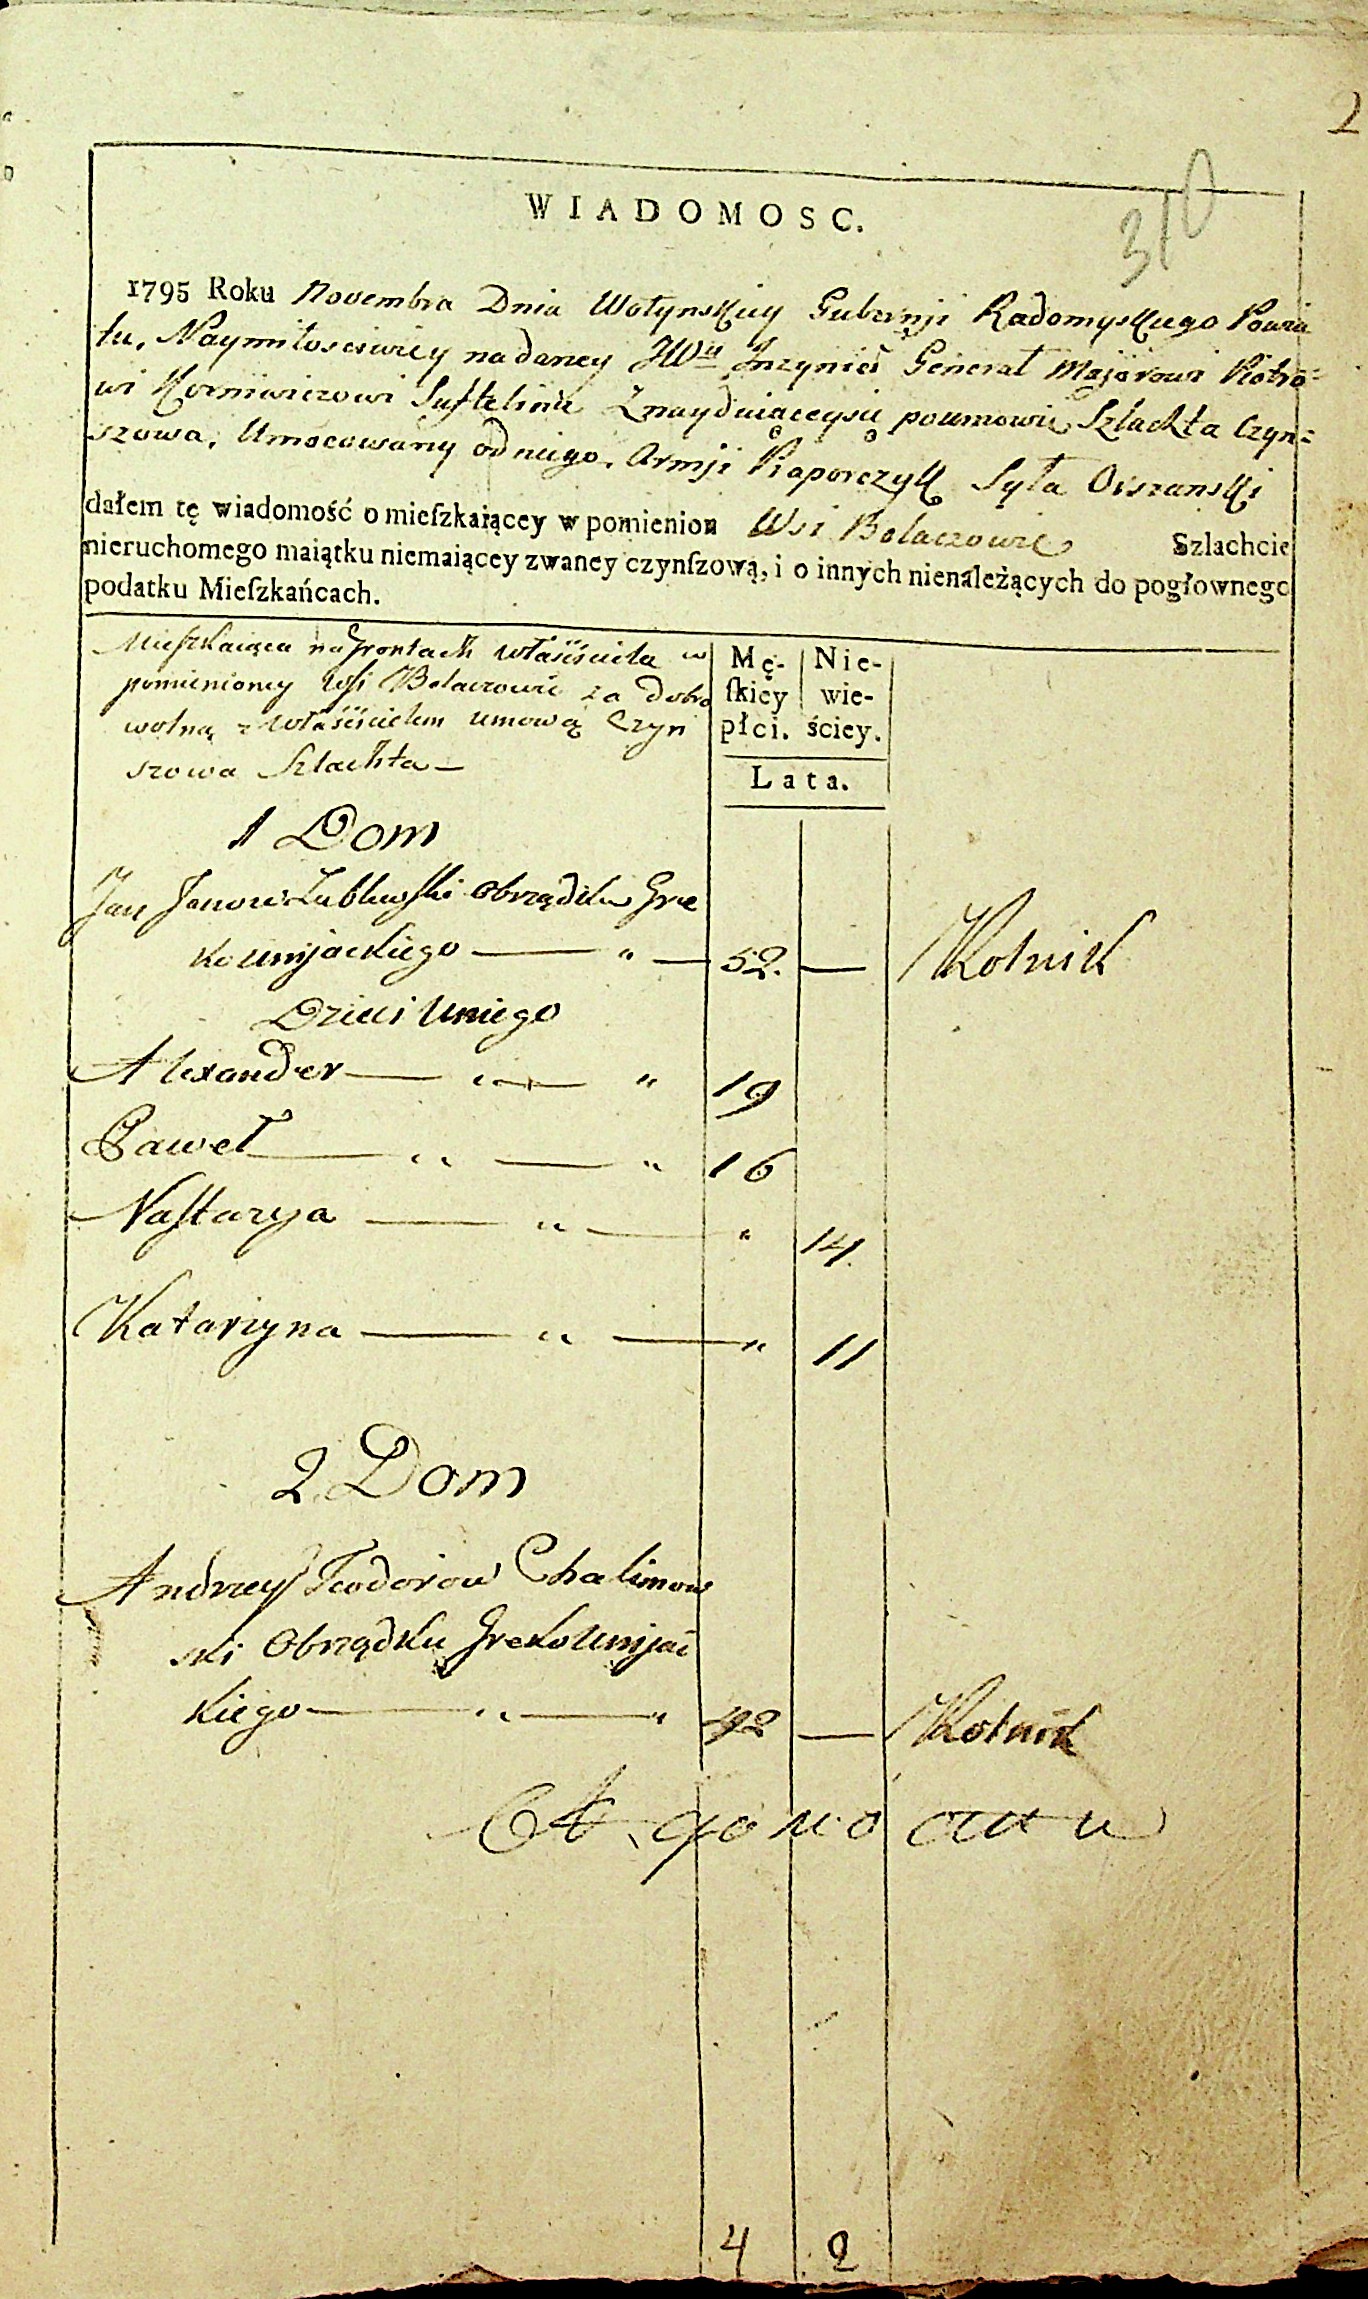 2
310
WIADOMOSC.
1795 Roku Novembra Dnia Wołynskiey Gubernji Radomyskiego Powia
tu, Naymiłosciwiey nadaney JW Inzynier Generał Majorowi Piotro=
wi Korniewiczowi Znayduiąceysię poumowie Szlachta Czyn=
szowa, Umocowany od niego, Armji Praporczyk Syła Oiszanski
dałem tę wiadomość o mieſzkaiącey w pomienion Wsi Belaczowie Szlachcie
nieruchomego maiątku niemaiącey zwaney czynſzową, i o innych nienależących do pogłownego
podatku Mieſzkańcach.
Mieſzkaiąca na Grontach właściciela w
pomienioney Wsi Belaczowie za dobro
wolną z właścicielem umową Czyn
szowa Szlachta —
Mę- Nie-
ſkiey wie-
płci. ściey.
Lata.
1 Dom
Jan Janow Lublewſki Obrządku Gre
koUnijackiego — " — 52. — Rolnik
Dzieci Uniego
Alexander — " — " 19
Paweł — " — " 16
Naſtazya — " — " 14.
Katarzyna — " — " 11
2 Dom
Andrzey Teodorow Chalimow
ski Obrządku GrekoUnijac
kiego — " — " 42 — Rolnik
4 2